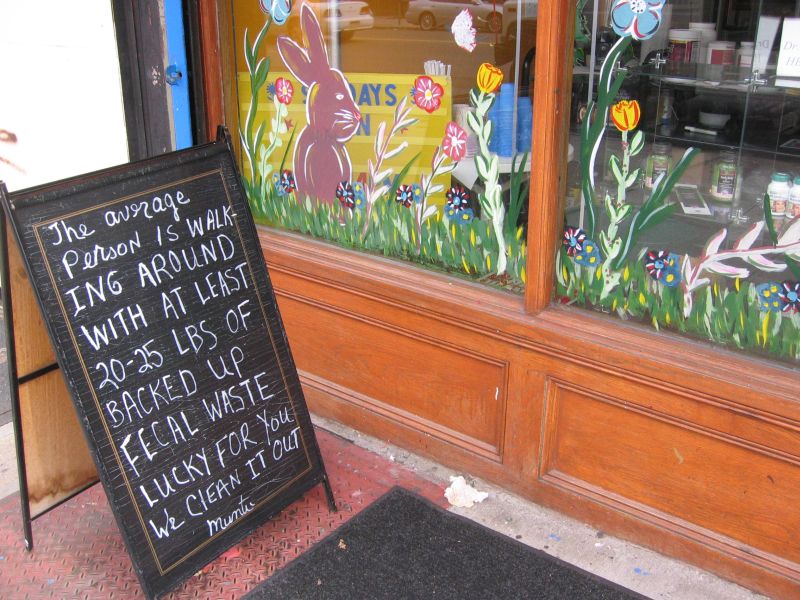 The average
Person is walk-
ing around
with at least
20-25 lbs of
backed up
fecal waste
lucky for you
we clean it out
Muntu